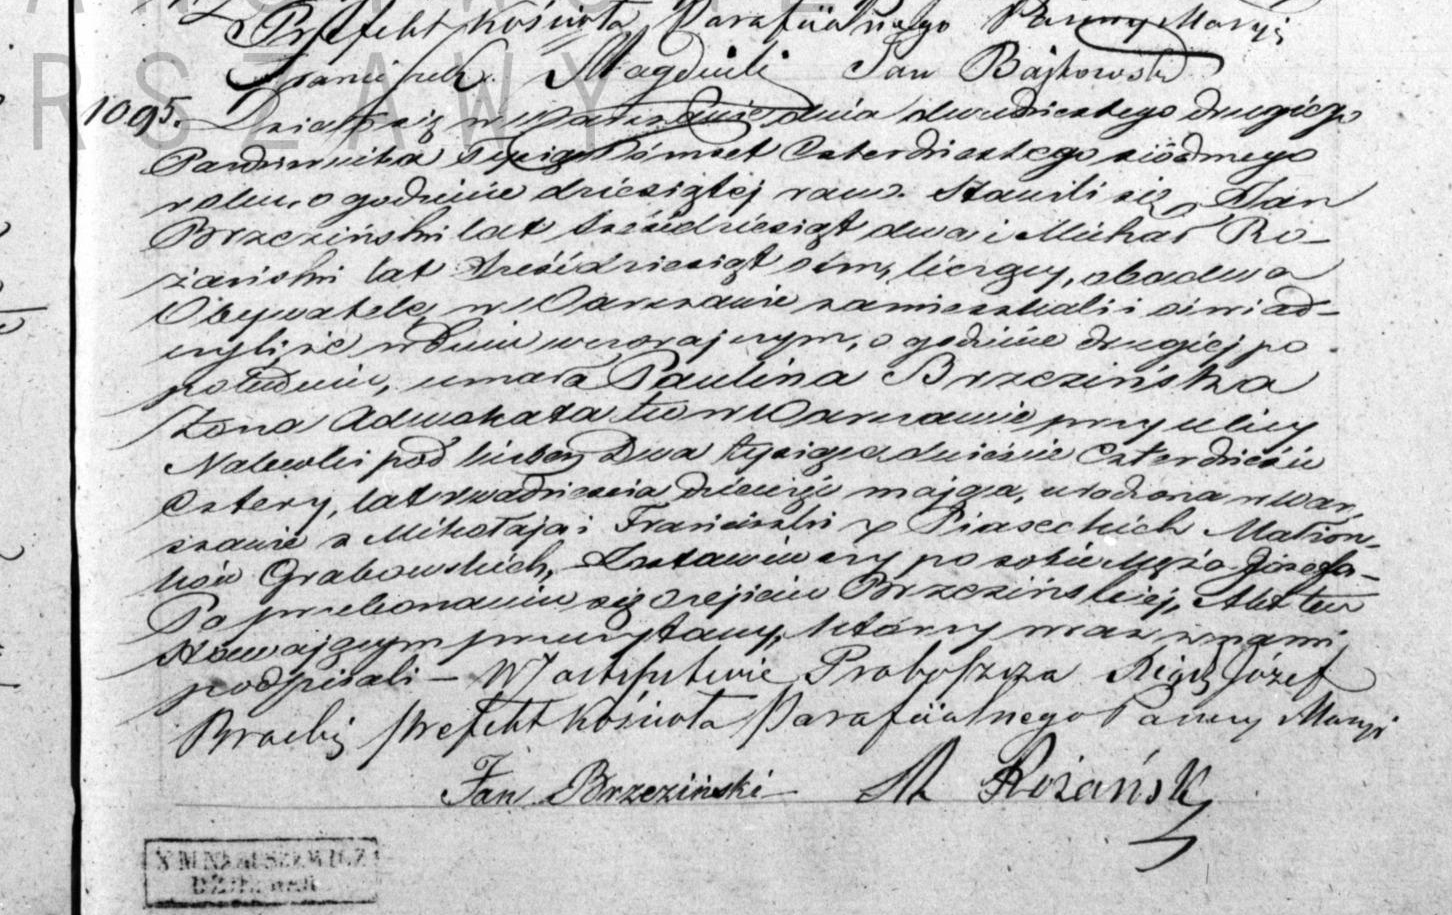 RSZAWY
Prefekt Kościoła Parafiialnego Panny Maryi
Franciszek Magdzicki Jan Bajkowski
1095. Działo się w Warszawie dnia dwudziestego drugiego
Pazdziernika tysiąc ośmset Czterdziestego siódmego
roku, o godzinie dziesiątej rano. Stawili się Jan
Brzeziński lat sześćdziesiąt dwa i Michał Ro-
żański lat sześćdziesiąt ośm, liczący, obadwa
Obywatele, w Warszawie zamieszkali i oświad-
czyli, że w dniu wczorajszym, o godzinie drugiej po
południu, umarła Paulina Brzezińska
Żona Adwokata tu w Warszawie przy ulicy
Nalewki pod liczbą Dwa tysiące dwieście Czterdzieści
Cztery, lat dwadzieścia mająca, urodzona w War-
szawie z Mikołaja i Franciszki z Piaseckich Małżon-
ków Grabowskich, Zostawiwszy po sobie Męża Józefa-
Po przekonaniu się o zejściu Brzezińskiej, Akt ten
Stawającym przeczytany, którzy wraz z nami
podpisali – W Zastępstwie Proboszcza Xiądz Józef
Prefekt Kościoła Parafiialnego Panny Maryi
Jan Brzeziński M Rożański